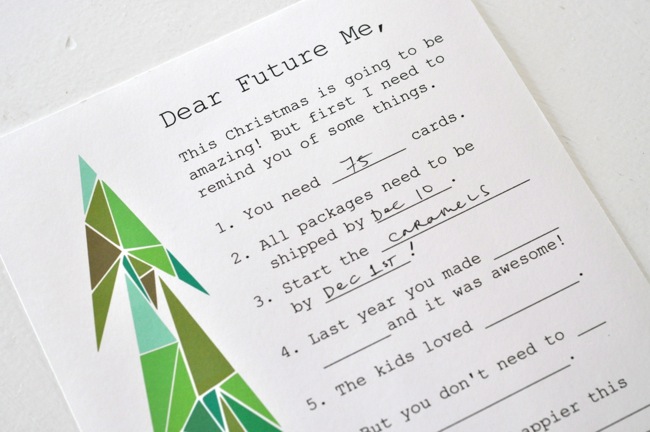 Dear Future Me,
This Christmas is going to be
amazing! But first I need to
remind you of some things.
1. You need 75 cards.
2. All packages need to be
shipped by Dec 10.
3. Start the caramels
by Dec 1st!
4. Last year you made
and it was awesome!
5. The kids loved .
But you don't need to
.
appier this